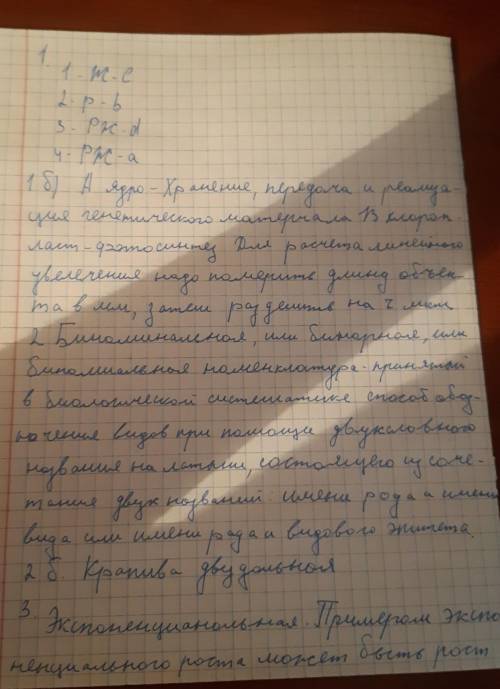 1.
1 - Ж - С
2 - р - b
3 - РЖ - d
4 - РЖ - a
1 б) А ядро - Хранение, передача и реализа-
ция генетического материала В хлороп-
ласт - фотосинтез Для расчета линейного
увеличения надо померить длинд объек-
та в мм, затем разделить на 4 мкм
2 Биноминальная, или бинарная, или
биномиальная номенклатура - принятый
в биологической систематике способ обоз-
начения видов при помощи двухсловного
названия на латыни, состоящего из соче-
тания двух названий: имени рода и имени
вида или имени рода и видового эпитета.
2 б. Крапива двудольная
3. Экспоненциональная. Примером экспо
ненциального роста может быть рост